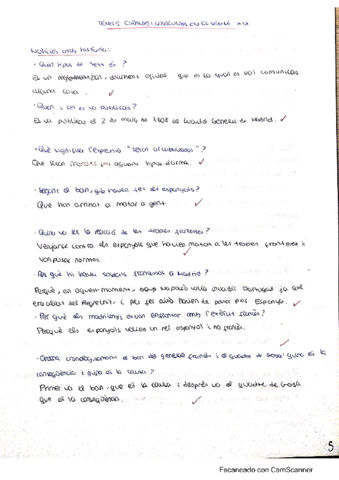 TEMA 5: ESPANYA I CATALUNYA EN EL SEGLE XIX
Notícies amb història:
· Quin tipus de text és?
És un informatiu, document oficial que es la qual es vol comunicar
alguna cosa.
· Quan i on es va publicar?
Es va publicar el 2 de maig de 1808 al Quartel General de Madrid.
· Què significa l'expressió "seran arcabussats"?
Que seran morts per aquest tipus d'arma.
· Segons el ban, què havien fet els espanyols?
Que han arribat a matar a gent.
· Quina va ser la reacció de les tropes franceses?
Venjarse contra els espanyols que havien matat a les tropes franceses i
van posar normes.
· Per què hi havia soldats francesos a Madrid?
Perquè, en aquest moment, Napoleó volia envair Portugal ja que
era aliat del Regne Unit i per fer això havien de passar per Espanya.
· Per què els madrilenys es van enfrontar amb l'exèrcit francès?
Perquè els espanyols volien un rei espanyol i no francès.
· Ordena cronològicament el ban del general francès i el quadre de Goya: quina és la
conseqüència i quina és la causa?
Primer va el ban, que és la causa i després va el quadre de Goya
que és la conseqüència.
5
Escaneado con CamScanner